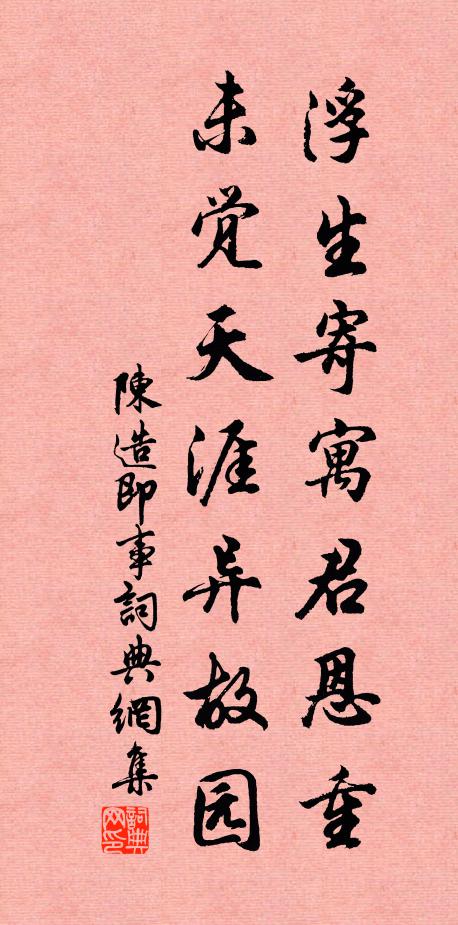 浮生寄寓君恩重
未觉天涯异故园
陳造即事詞典網集
詞典网印